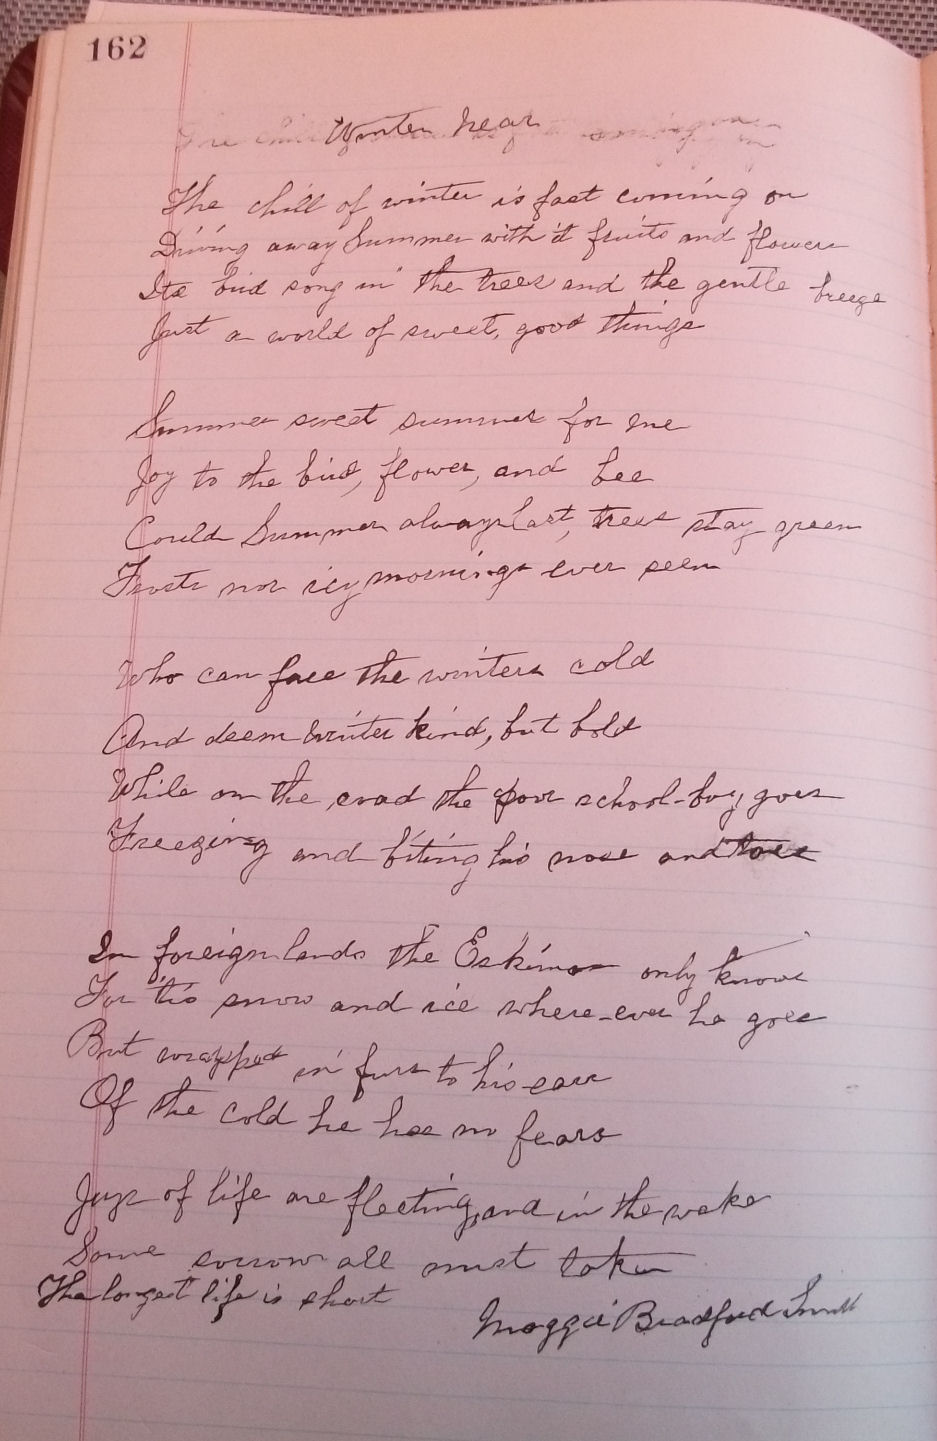 162
Winter near
The chill of winter is fast coming on
Driving away Summer with it fruits and flowers
Its bird song in the trees and the gentle breeze
Just a world of sweet, good things
Summer sweet summer for me
Joy to the bird, flower, and bee
Could Summer always last, trees stay green
Frosts nor icy mornings ever seen
Who can face the winters cold
And deem Winter kind, but bold
While on the road the poor school-boy goes
Freezing and biting his nose and toes
In foreign lands the Eskimo only knows
For 'tis snow and ice where-ever he goes
But wrapped in furs to his ears
Of the cold he has no fears
Joys of life are fleeting, and in the wake
Some sorrow all must take
The longest life is short
Maggie Bradford Smith